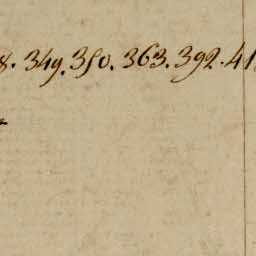 8. 349. 350. 363. 392. 41